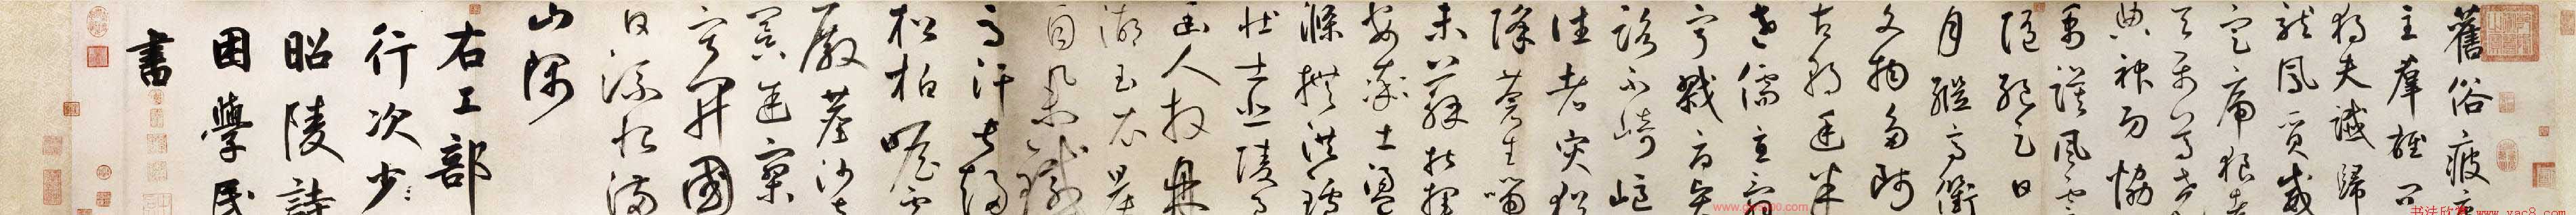 舊俗疲庸
主羣雄問
獨夫讖歸
龍鳳質威
定虎狼都
天屬尊堯
典神功協
禹謨風雲
隨絕足日
月繼高衢
文物多師
古朝廷半
老儒直詞
寧戮辱賢
路不崎嶇
往者災猶
降蒼生喘
未蘇指揮
安率土盪
滌撫洪爐
壯士悲陵邑
幽人拜鼎
湖玉衣晨
自舉鐵
馬汗常趨
松柏瞻虛
殿塵沙立
暝途寂
寥開國
日流恨滿
山隅
右工部
行次少
昭陵詩
困學民
書
书法欣赏 www.yac8.com